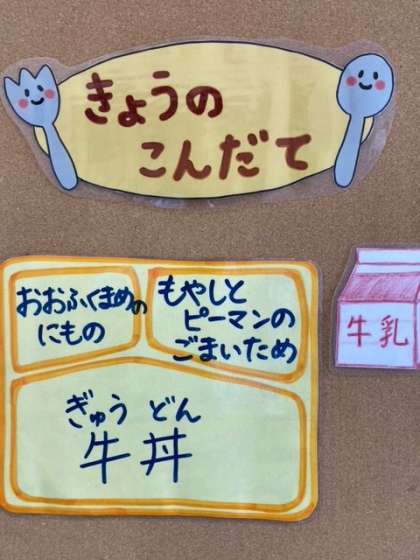 きょうの
こんだて
おおふくまめの
にもの
もやしと
ピーマンの
ごまいため
ぎゅう どん
牛丼
牛乳